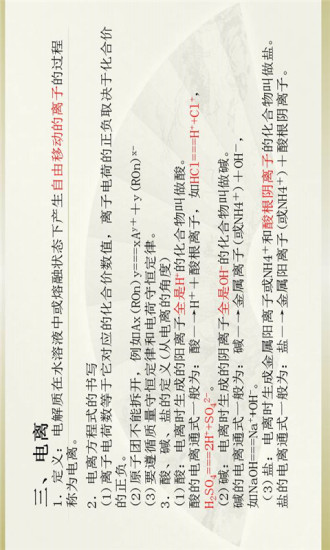 三、电离
1．定义：电解质在水溶液中或熔融状态下产生自由移动的离子的过程
称为电离。
2．电离方程式的书写
(1)离子电荷数等于它对应的化合价数值，离子电荷的正负取决于化合价
的正负。
(2)原子团不能拆开，例如Ax(ROn)y===xAʸ⁺＋y(ROn)ˣ⁻
(3)要遵循质量守恒定律和电荷守恒定律。
3．酸、碱、盐的定义(从电离的角度)
(1)酸：电离时生成的阳离子全是H⁺的化合物叫做酸。
酸的电离通式一般为：酸―→H⁺＋酸根离子，如HCl===H⁺+Cl⁻，
H₂SO₄===2H⁺+SO₄²⁻。
(2)碱：电离时生成的阴离子全是OH⁻的化合物叫做碱。
碱的电离通式一般为：碱―→金属离子(或NH4⁺)＋OH⁻，
如NaOH===Na⁺+OH⁻。
(3)盐：电离时生成金属阳离子或NH4⁺和酸根阴离子的化合物叫做盐。
盐的电离通式一般为：盐―→金属阳离子(或NH4⁺)＋酸根阴离子。